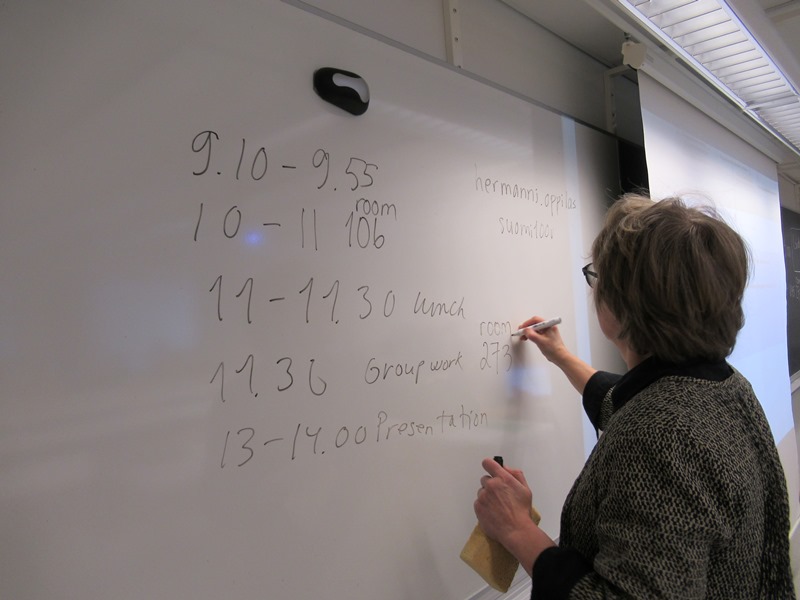 9.10 - 9.55
10 - 11 room 106
11 - 11.30 lunch
11.30 Group work room 273
13 - 14.00 Presentation
hermanni.oppilas
suomi100